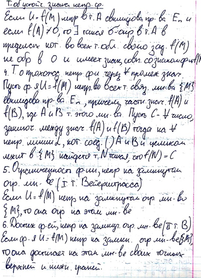 Т. об устойч. знака непр. ф.
Если U=f(M) непр. в т. A евклидова пр-ва Eₙ и
если f(A)≠0, то ∃ такая δ-окр в т. A в
пределах кот. во всех т. обл. своего зад. f(M)
не обр. в 0 и имеет знак,
4. Т о прохожд. непр. ф-ии через ∀ промеж. знач.
Пусть ф-я U=f(M) непр. во всех т. связн. мн-ва {M}
евклидова пр-ва Eₙ, причем, f(A) и
f(B), где A и B т. этого мн-ва. Пусть C - ∀ число,
заключ. между знач. f(A) и f(B) тогда на ∀
непр. линии L, кот. соед. () A и B и целиком
лежит в {M} найдется т. N такая, что f(N)=C
5. Ограниченность ф-ии, непр. на замкнутом
огр. мн-ве (I т. Вейерштрасса)
Если U=f(M) непр. на замкнутом огр. мн-ве
{M}, то она огр. на этом мн-ве
6. Достиж. ф-ей, непр. на замкнут. огр. мн-ве (II т. В)
Если ф-я U=f(M) непр. на замкн. огр. мн-ве {M}
то она достигает на этом мн-ве своих точных
верхней и нижн. граней.